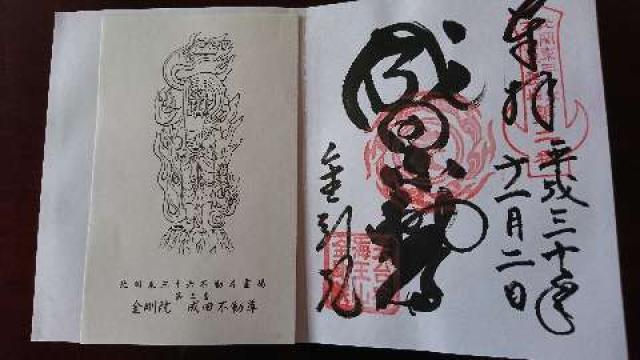 北関東三十六不動尊霊場
金剛院 成田不動尊
奉拝 平成三十年
十一月二日
成田不動尊
金剛院